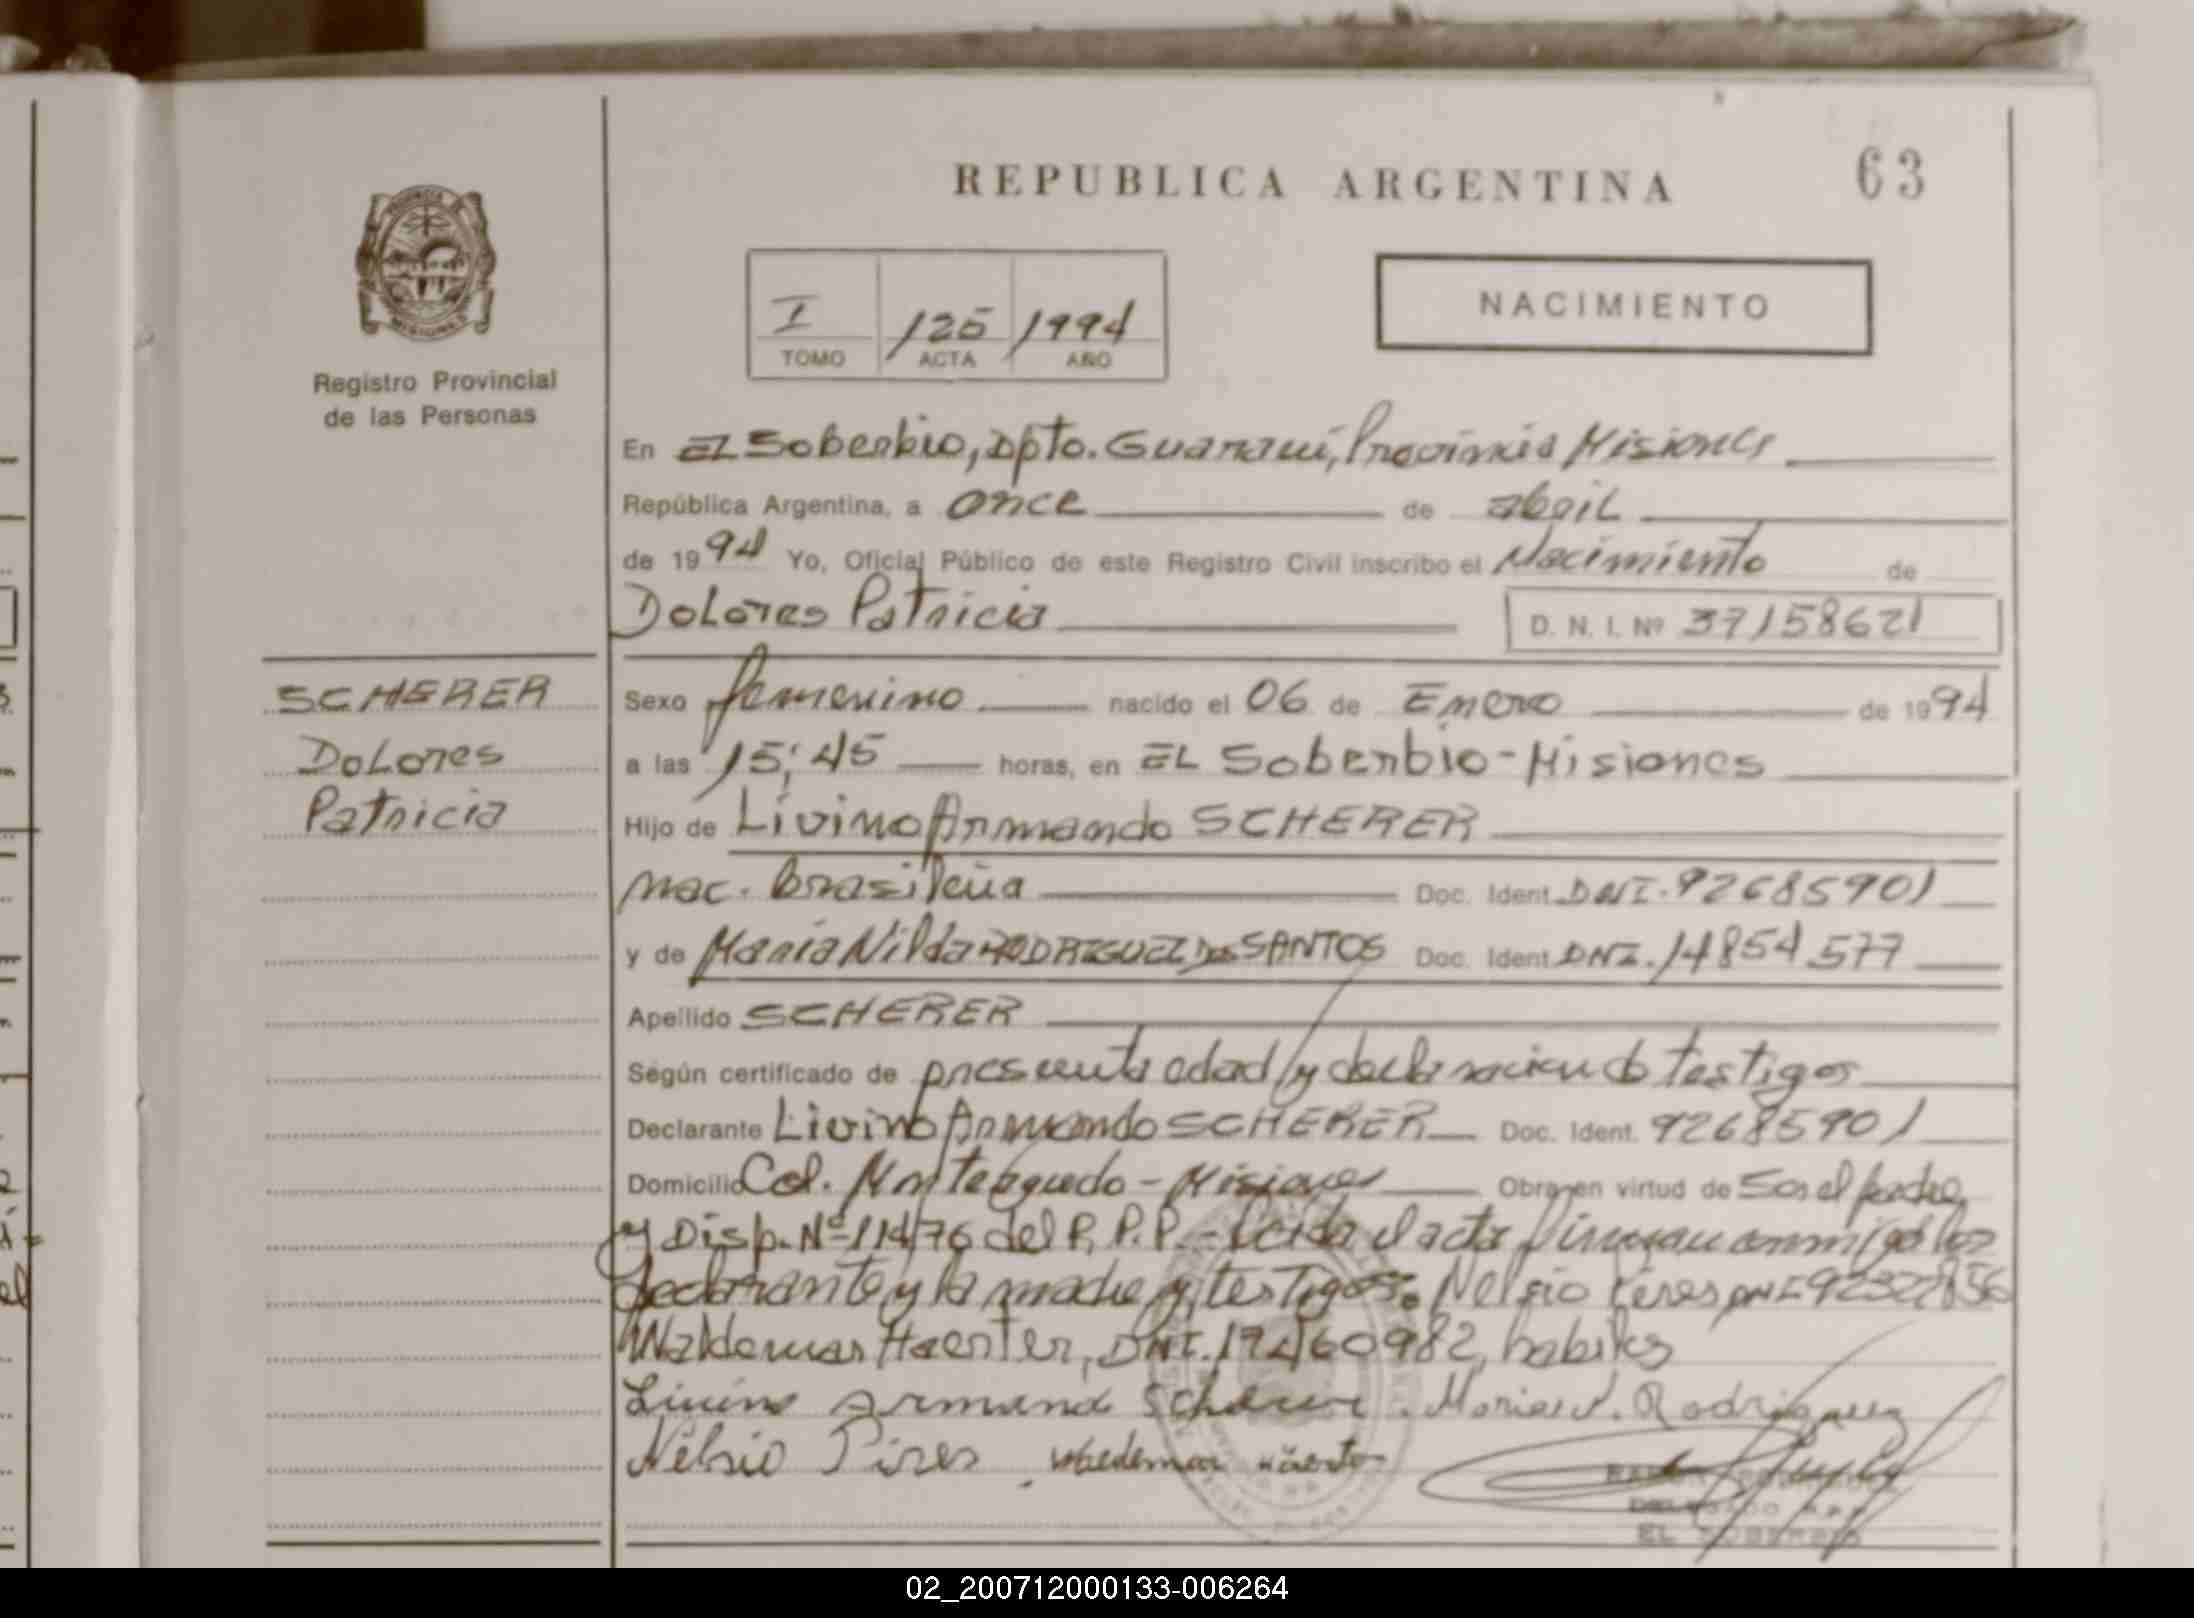 REPUBLICA ARGENTINA
63
MISIONES
Registro Provincial
de las Personas
I /125 /1994
TOMO ACTA AÑO
NACIMIENTO
En EL Soberbio, Dpto. Guaraní, Provincia Misiones
República Argentina, a once de abril
de 1994 Yo, Oficial Público de este Registro Civil inscribo el Nacimiento de
Dolores Patricia D. N. I. Nº 37158621
SCHERER
Dolores
Patricia
Sexo femenino nacido el 06 de Enero de 1994
a las 15:45 horas, en EL Soberbio-Misiones
Hijo de Livino Armando SCHERER
nac. brasileña Doc. Ident. DNI. 92685901
y de María Nilda RODRIGUEZ Dos SANTOS Doc. Ident. DNI. 14854577
Apellido SCHERER
Según certificado de presunta edad y declaracion de testigos
Declarante Livino Armando SCHERER Doc. Ident. 92685901
Domicilio Col. Monteagudo - Misiones Obra en virtud de Ser el padre
y Disp. Nº 114/76 del R.P.P. - Leida el acta firman conmigo los
declarante y la madre y testigos. Nelsio Pires DNI 92327856
Waldemar Haerter, DNI. 17460982, habiles
Livino Armando Scherer. Maria N. Rodriguez
Nélsio Pires
EL SOBERBIO
02_200712000133-006264